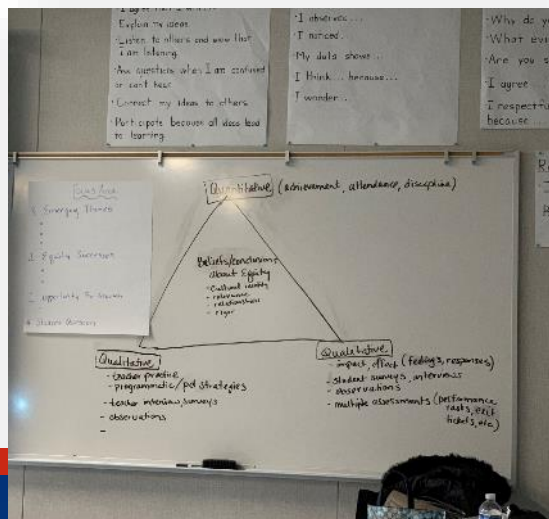 · I agree
Explain my ideas.
· Listen to others and show that
I am listening.
· Ask questions when I am confused
or can't hear.
· Connect my ideas to others.
· Participate because all ideas lead
to learning.
· I observe...
· I noticed...
· My data shows...
· I think... because...
I wonder...
· Why do yo
· What evi
· Are you s
I agree
I respectfu
because...
Focus Area
Emerging Themes
Equity Successes
Opportunity for Growth
Student Outcomes
Quantitative (achievement, attendance, discipline)
Beliefs/conclusions
about Equity
- cultural identity
- relevance
- relationships
- rigor
Qualitative
- teacher practice
- programmatic/pd strategies
- teacher interviews, surveys
- observations
-
Qualitative
- impact, effect (feelings, responses)
- student surveys, interviews
- observations
- multiple assessments (performance
tasks, exit
tickets, etc)